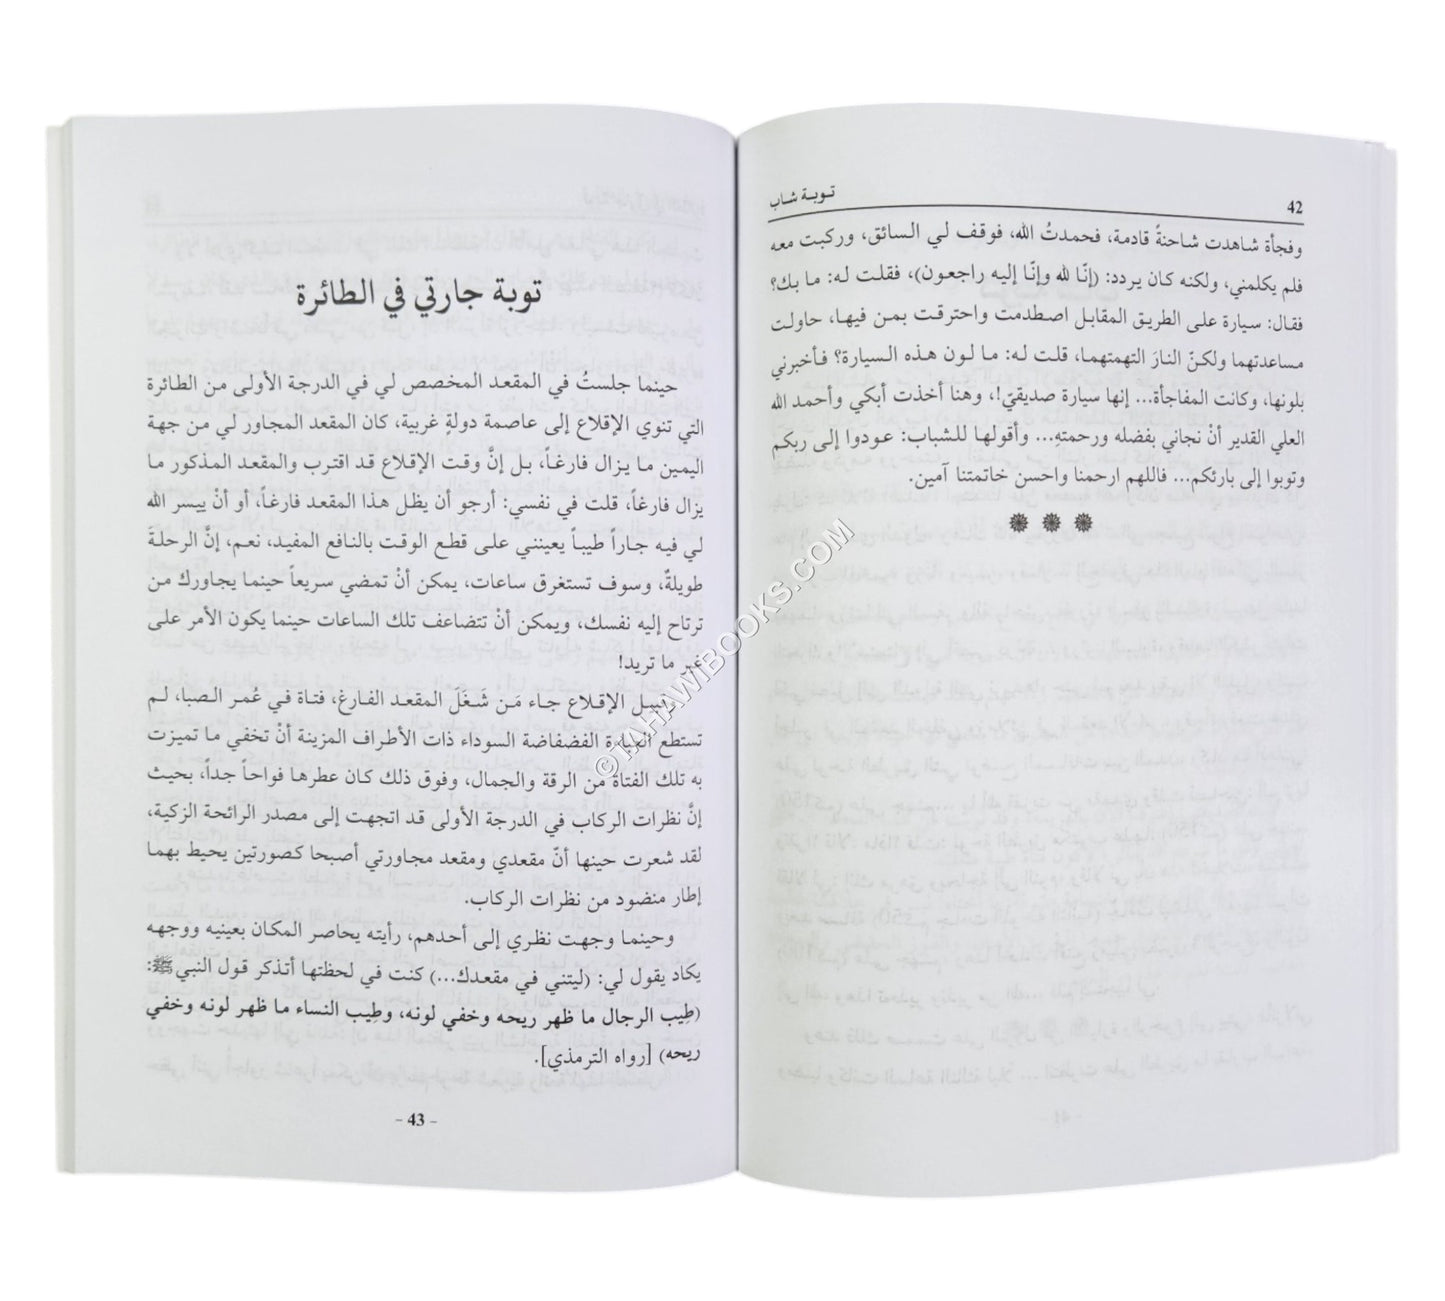 42
توبة شاب
وفجأة شاهدت شاحنةً قادمة، فحمدتُ الله، فوقف لي السائق، وركبت معه
فلم يكلمني، ولكنه كان يردد: (إنّا لله وإنّا إليه راجعون)، فقلت له: ما بك؟
فقال: سيارة على الطريق المقابل اصطدمت واحترقت بمن فيها، حاولت
مساعدتهما ولكنّ النارَ التهمتهما، قلت له: ما لون هذه السيارة؟ فأخبرني
بلونها، وكانت المفاجأة... إنها سيارة صديقيّ!، وهنا أخذت أبكي وأحمد الله
العلي القدير أنْ نجاني بفضله ورحمتهِ... وأقولها للشباب: عودوا إلى ربكم
وتوبوا إلى بارئكم... فاللهم ارحمنا واحسن خاتمتنا آمين.
توبة جارتي في الطائرة
حينما جلستُ في المقعد المخصص لي في الدرجة الأولى من الطائرة
التي تنوي الإقلاع إلى عاصمة دولةٍ غربية، كان المقعد المجاور لي من جهة
اليمين ما يزال فارغاً، بل إنَّ وقت الإقلاع قد اقترب والمقعد المذكور ما
يزال فارغاً، قلت في نفسي: أرجو أن يظل هذا المقعد فارغاً، أو أنْ ييسر الله
لي فيه جاراً طيباً يعينني على قطع الوقت بالنافع المفيد، نعم، إنَّ الرحلة
طويلةٌ، وسوف تستغرق ساعات، يمكن أنْ تمضي سريعاً حينما يجاورك من
ترتاح إليه نفسك، ويمكن أنْ تتضاعف تلك الساعات حينما يكون الأمر على
غير ما تريد!
وقبيل الإقلاع جاء مَن شَغَلَ المقعد الفارغ، فتاة في عُمر الصبا، لم
تستطع العباءة الفضفاضة السوداء ذات الأطراف المزينة أنْ تخفي ما تميزت
به تلك الفتاة من الرقة والجمال، وفوق ذلك كان عطرها فواحاً جداً، بحيث
إنَّ نظرات الركاب في الدرجة الأولى قد اتجهت إلى مصدر الرائحة الزكية،
لقد شعرت حينها أنّ مقعدي ومقعد مجاورتي أصبحا كصورتين يحيط بهما
إطار منضود من نظرات الركاب.
وحينما وجهت نظري إلى أحدهم، رأيته يحاصر المكان بعينيه ووجهه
يكاد يقول لي: (ليتني في مقعدك...) كنت في لحظتها أتذكر قول النبي ﷺ:
(طِيب الرجال ما ظهر ريحه وخفي لونه، وطِيب النساء ما ظهر لونه وخفي
ريحه) [رواه الترمذي].
- 43 -
© TAHAWIBOOKS.COM